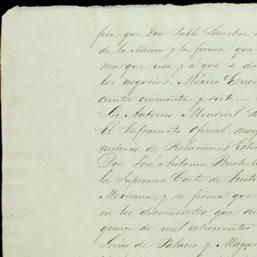 por que Don Pablo Sanchez
de la Nacion y la firma que
ma que usa y á que se da
los negocios. Mexico Enero
cientos cincuenta y siete.—
Lic. Antonio Monduid
El Infrascrito Oficial mayor
nisterio de Relaciones Exter
Don José Antonio Bucheli
la Suprema Corte de Justi
Mexicana, y su firma que
en los documentos que au
quince de mil ochocientos
Lucas de Palacio y Magar